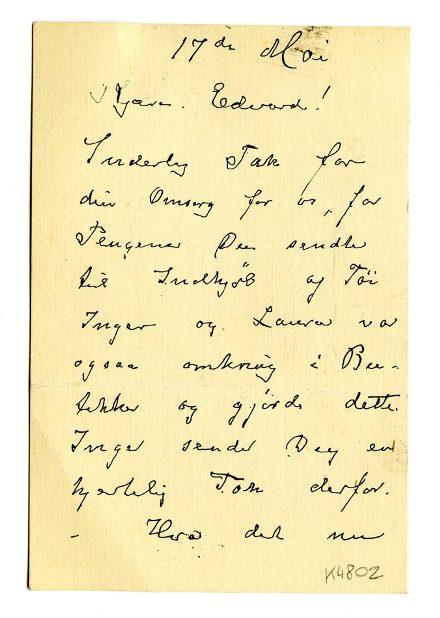 17de Mai
Kjære Edvard!
Inderlig Tak for
din Omsorg for os, for
Pengene Du sendte
til Indkjøb af Töi
Inger og Laura var
ogsaa omkring i Bu-
tikker og gjorde dette.
Inger sender Deg en
hjertelig Tak derfor.
- Hvor det nu
K4802